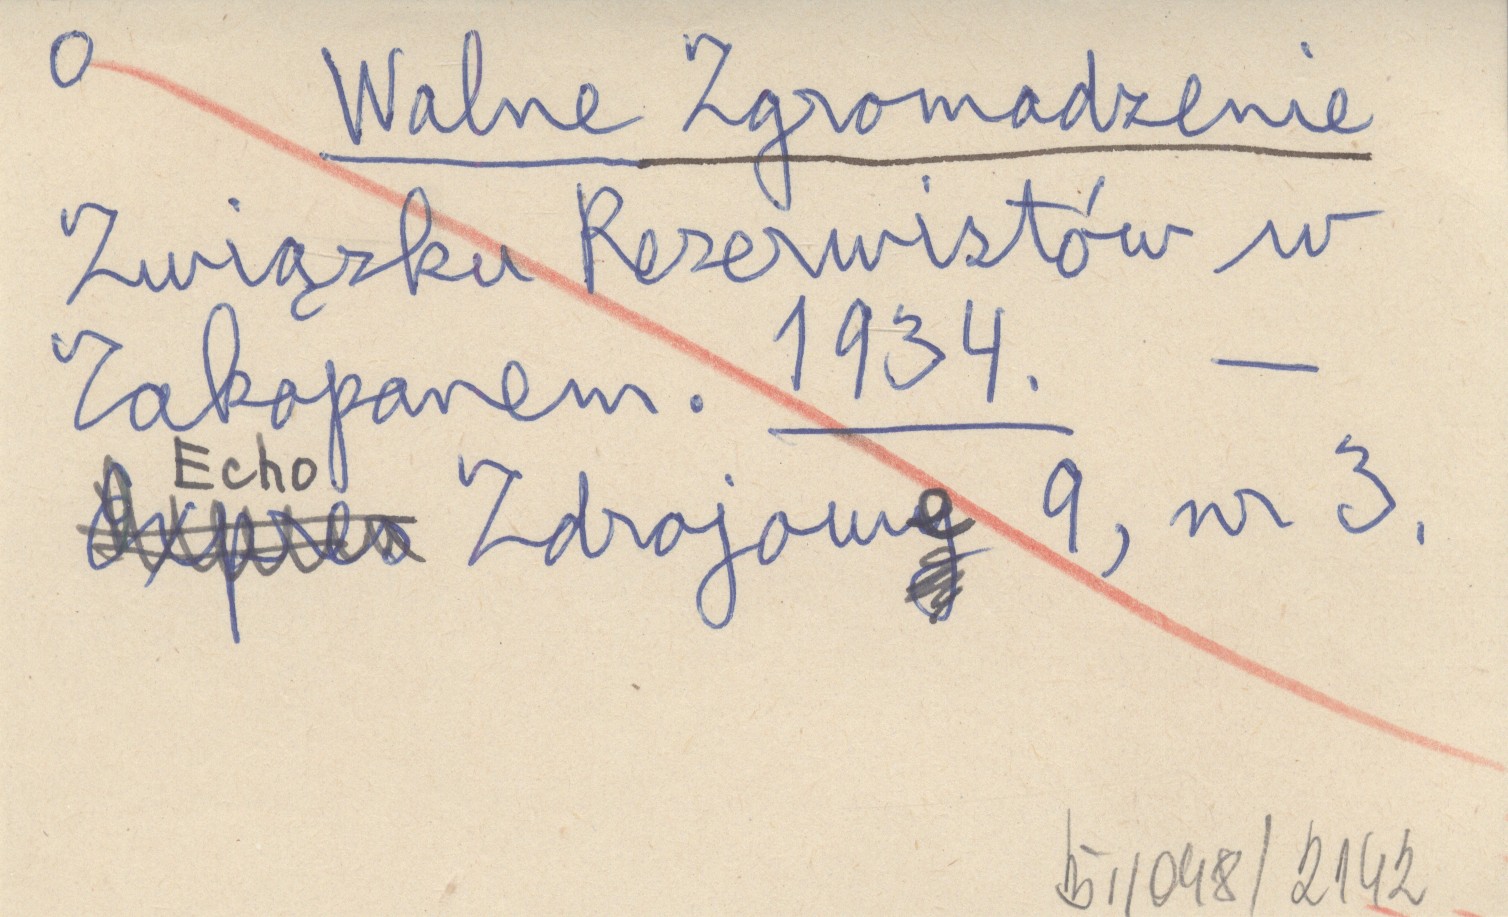 O
Walne Zgromadzenie
Związku Rezerwistów w
Zakopanem. 1934. —
Echo
Zdrojowe 9, nr 3.
/048/2142